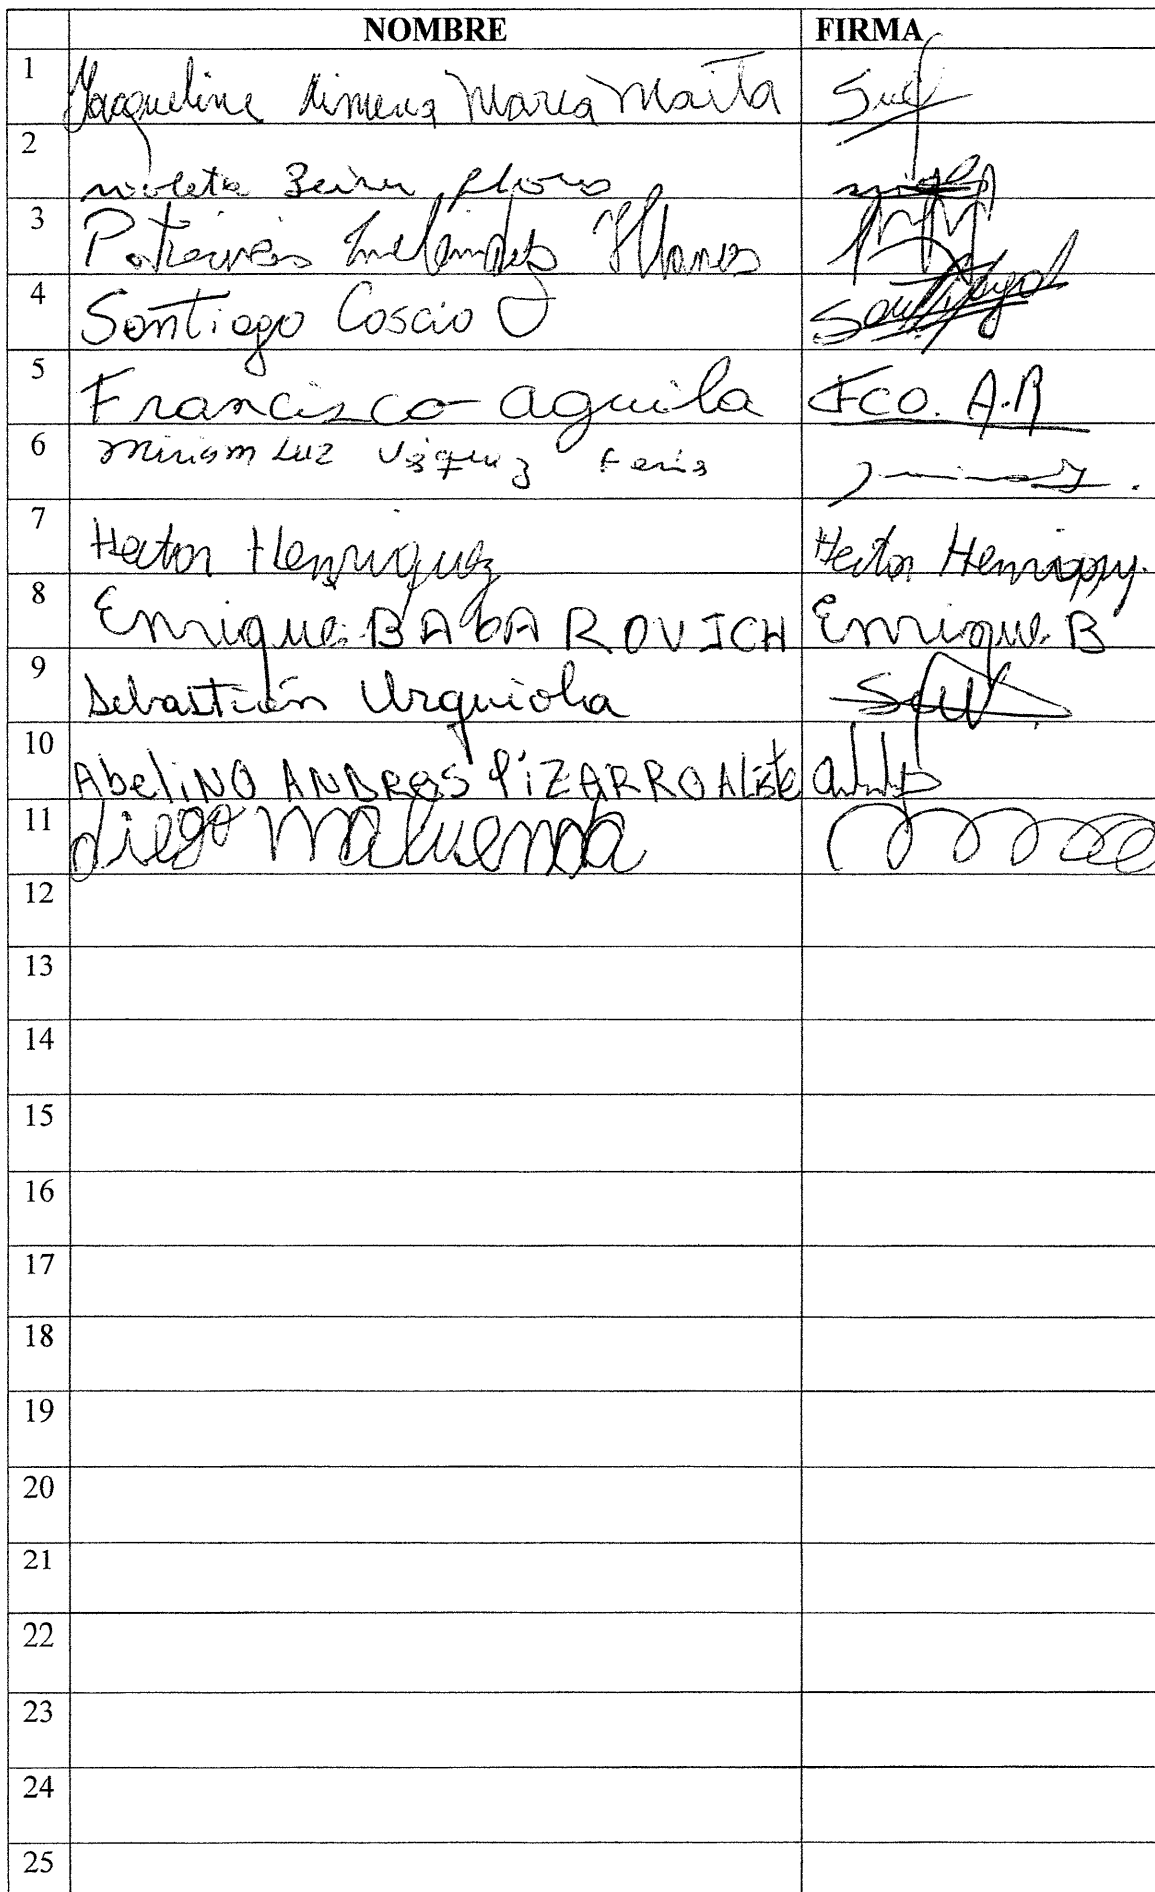 NOMBRE FIRMA
1 Jacqueline Ximena Marca Maita
2 violeta
3 Patricia Illanes
4 Santiago Coscio J Santiago
5 Francisco aguila FCO. A.R
6 Miriam Luz Vásquez
7 Hector Henriquez Hector Henriquez.
8 Enrique BABAROVICH Enrique. B
9 Sebastián Urquiola
10 Abelino ANDRES PiZARRO Aliste
11 diego Maluenda
12
13
14
15
16
17
18
19
20
21
22
23
24
25